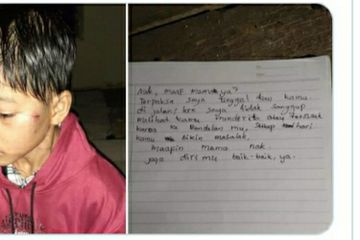 Nak, maaf mama ya?
Terpaksa saya tinggal dan kamu
di jalan, krs saya tidak sanggup
melihat kamu menderita atau
karna ke Bandelan mu, setiap hari
kamu bikin masalah,
maapin mama nak
jaga diri mu baik-baik, ya.